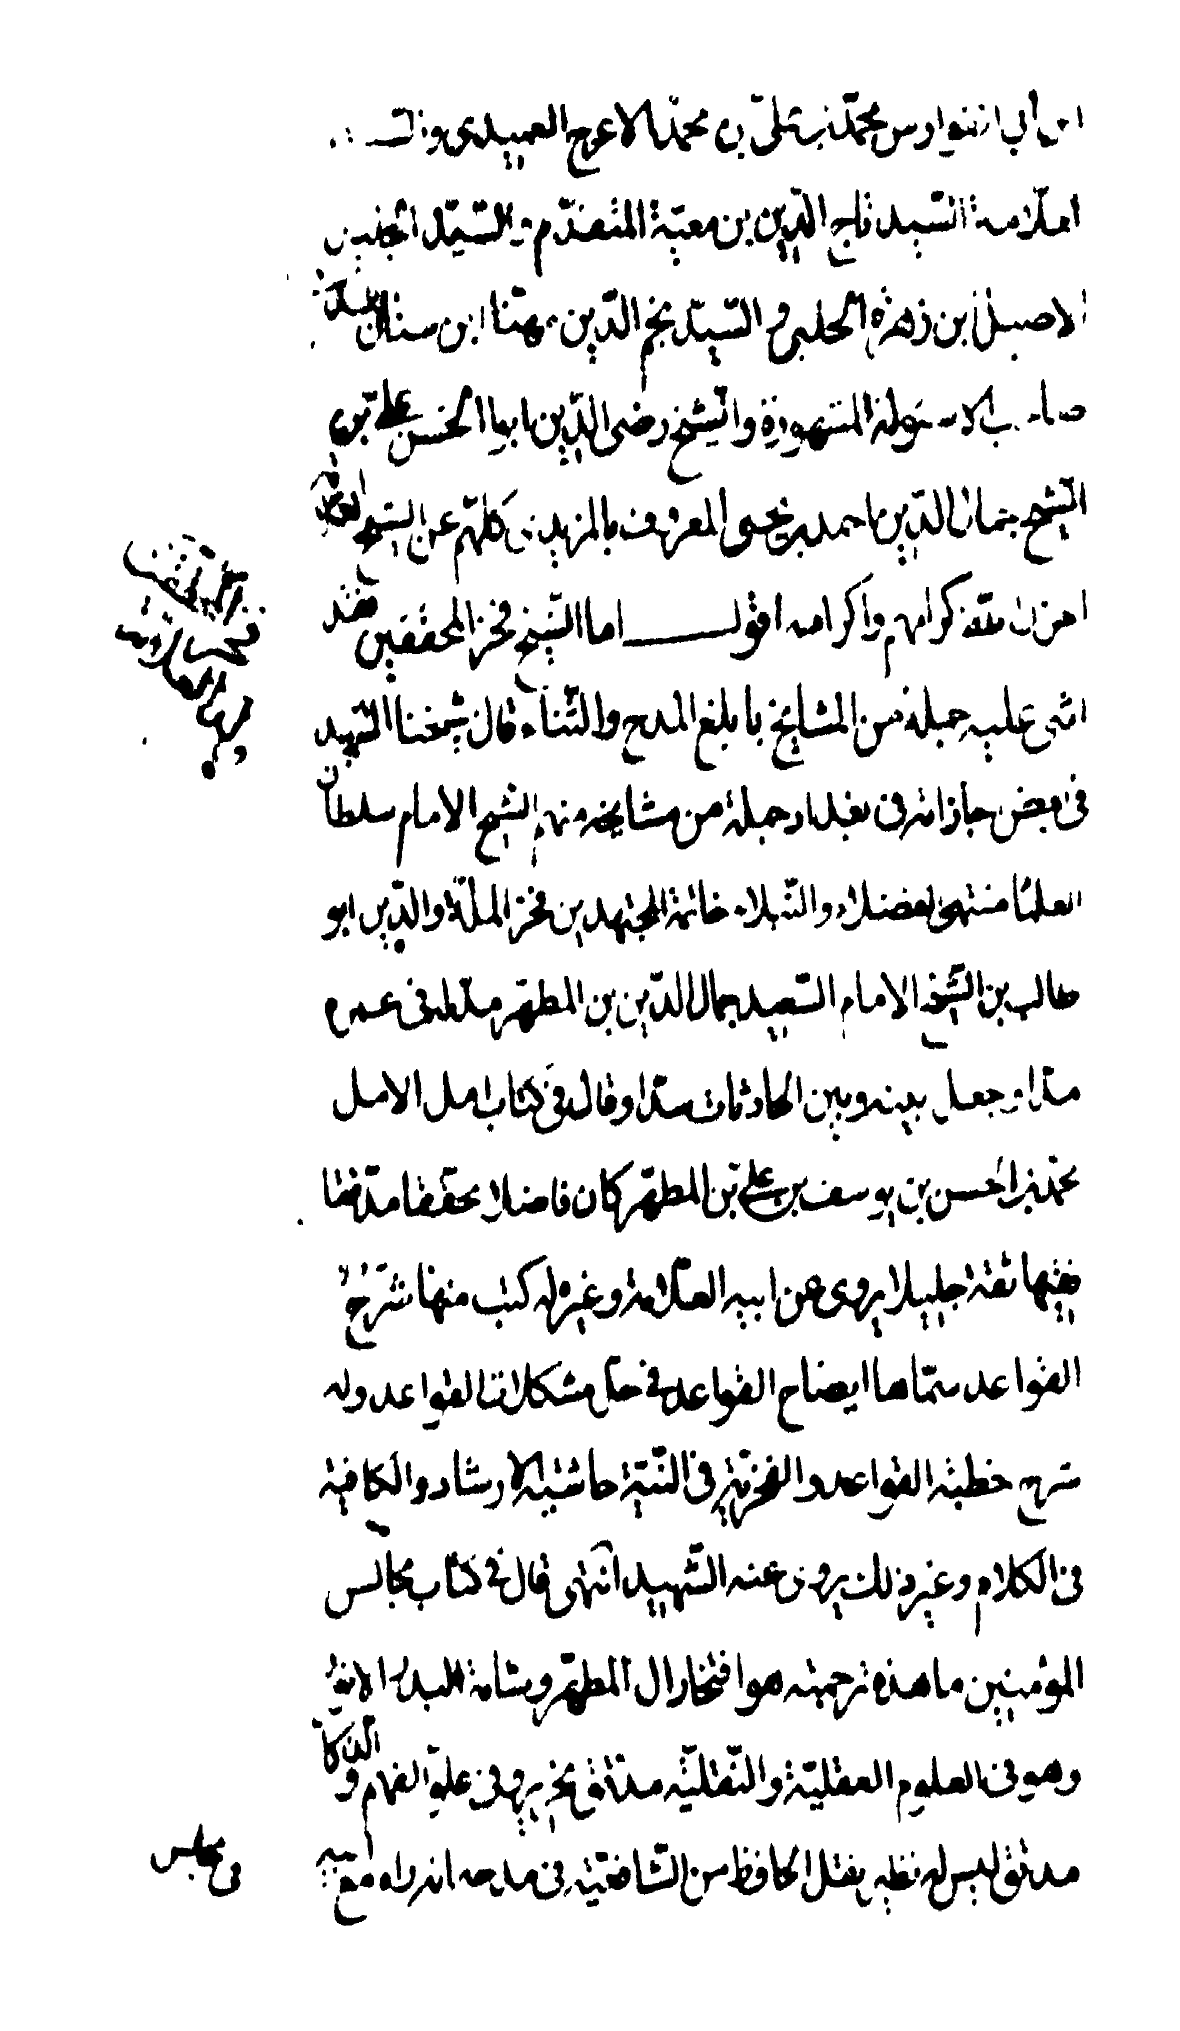 ابن أبي الفوارس محمد بن علي بن محمد الاعرج العبيدي و
العلامة السيد تاج الدين بن معية المتقدم و السيد الجليل
الاصيل ابن زهرة الحلبي و السيد نجم الدين مهنا ابن سنان المدني
صاحب الاسئولة المشهورة والشيخ رضي الدين ابو الحسن علي بن
الشيخ جمال الدين احمد بن يحيى المعروف بالمزيدي كلهم عن الشيخ العلامة
كرامهم واكرامه اقول اما الشيخ فخر المحققين فقد
اثنى عليه جملة من المشايخ بابلغ المدح والثناء قال شيخنا الشهيد
في بعض اجازاته في تعداد جملة من مشايخه منهم الشيخ الامام سلطان
العلماء منتهى الفضلاء والنبلاء خاتمة المجتهدين فخر الملة والدين ابو
طالب بن الشيخ الامام السعيد جمال الدين بن المطهر مد الله في عمره
مدا وجعل بينه وبين الحادثات سدا وقال في كتاب امل الامل
محمد بن الحسن بن يوسف بن علي بن المطهر كان فاضلا محققا مدققا
فقيها ثقة جليلا يروي عن ابيه العلامة وغيره له كتب منها شرح
القواعد سماها ايضاح القواعد في حل مشكلات القواعد وله
شرح خطبة القواعد والفخرية في النية حاشية الارشاد والكافية
في الكلام وغير ذلك يروي عنه الشهيد انتهى قال في كتاب مجالس
المؤمنين ما هذه ترجمته هو افتخار ال المطهر وشامة البدر الانور
وهو في العلوم العقلية والنقلية مدقق نحرير وفي علو الفهم و الذكاء
مدقق ليس له نظير نقل الحافظ من الشافعية في مدحه انه راه مع ابيه
في مجلس